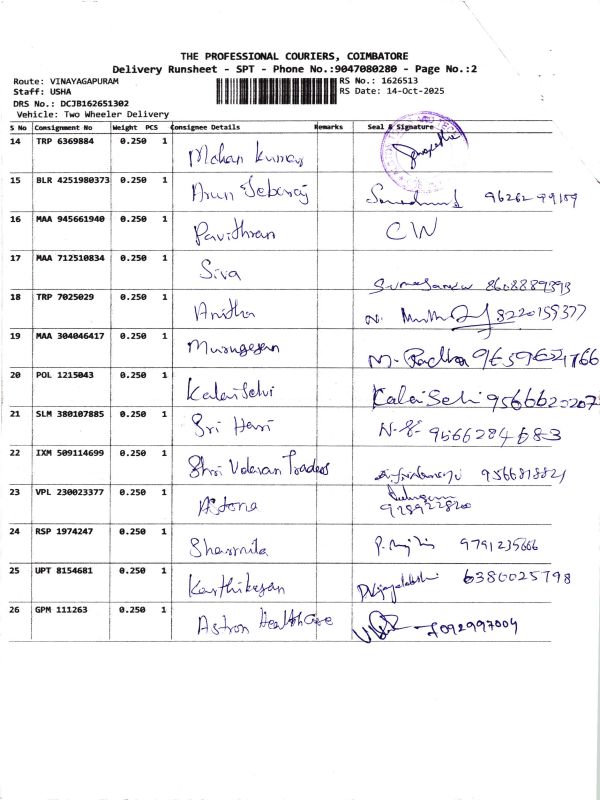 THE PROFESSIONAL COURIERS, COIMBATORE
Delivery Runsheet - SPT - Phone No.:9047080280 - Page No.:2
Route: VINAYAGAPURAM RS No.: 1626513
Staff: USHA RS Date: 14-Oct-2025
DRS No.: DCJB162651302
Vehicle: Two Wheeler Delivery
S No Consignment No Weight PCS Consignee Details Remarks Seal & Signature
14 TRP 6369884 0.250 1 Mohan Kumar
15 BLR 4251980373 0.250 1 Arun Jebaraj 96262 99159
16 MAA 945661940 0.250 1 Pavithran CW
17 MAA 712510834 0.250 1 Siva 8608889393
18 TRP 7025029 0.250 1 Anitha N. 8220159377
19 MAA 304046417 0.250 1 Murugesan M. Radha 9659624766
20 POL 1215043 0.250 1 Kalai Selvi Kalai Selvi 9566620207
21 SLM 380107885 0.250 1 Sri Hari 9566284683
22 IXM 509114699 0.250 1 Shri Velavan Traders 9566818821
23 VPL 230023377 0.250 1 Astoria 9789228200
24 RSP 1974247 0.250 1 Sharmila 9791235666
25 UPT 8154681 0.250 1 Karthikeyan D.Vijayalakshmi 6380025798
26 GPM 111263 0.250 1 Astron Healthcare 7092997004